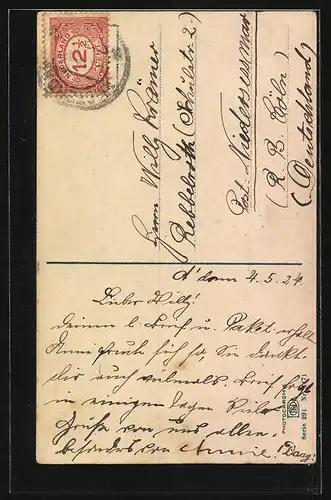 NEDERLAND
12½
Herrn Willy Krämer
Rebbelroth (Schulstr 2.)
Post. Niedersessmar
(R B Cöln)
(Deutschland)
A'dam 4.5.24
Lieber Willy!
Deinen l. Brief u. Paket erhalt
Anni freut sich so, Sie dankt
dir auch vielmals. Brief folgt
in einigen Tagen Viele
Grüße von uns allen,
besonders von Annie.
PHOTOCHROMIE
Serie 291 N